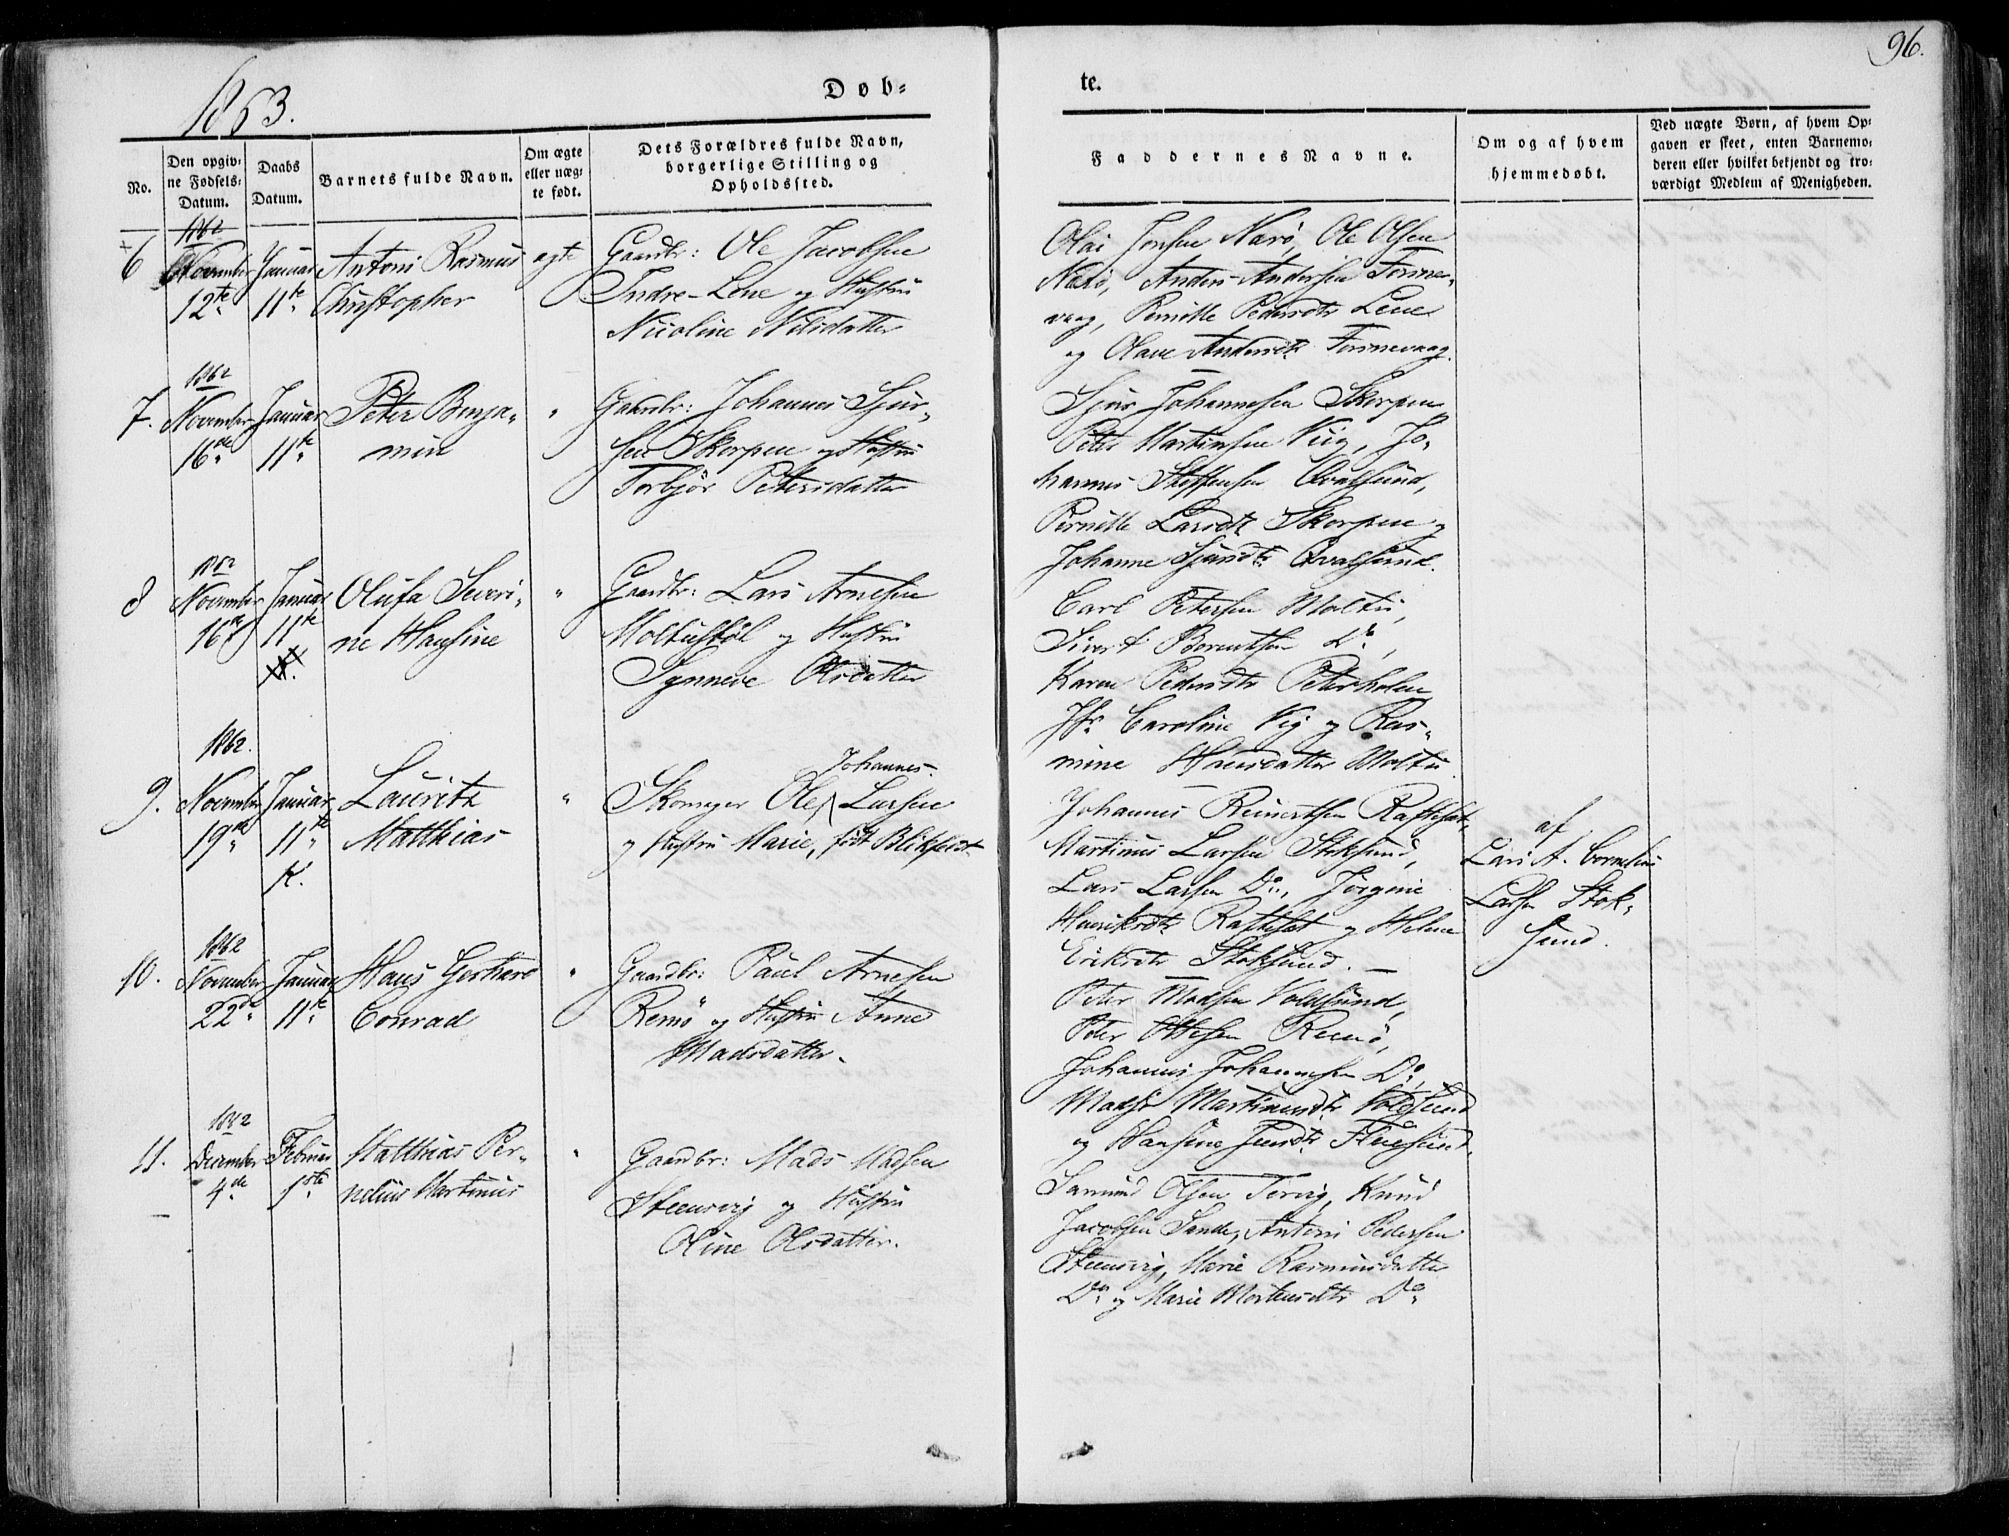 96.
1863.
Døb-
te.
No.
Den opgiv-
ne Fødsels-
Datum.
Daabs
Datum.
Barnets fulde Navn.
Om ægte
eller uæg-
te født.
Dets Forældres fulde Navn,
borgerlige Stilling og
Opholdssted.
Faddernes Navne.
Om og af hvem
hjemmedøbt.
Ved uægte Børn, af hvem Op-
gaven er skeet, enten Barnemo-
deren eller hvilket bekjendt og tro-
værdigt Medlem af Menigheden.
6
1862
November
12te
Januar
11te
Antoni Rasmus
Christopher
ægte
Gaardbr: Ole Jacobsen
Indre-Lene og Hustru
Nicoline Nilsdatter
Olai Jonsen Nærø, Ole Olsen
Nærø, Anders Andersen Tormer-
vaag, Pernille Pedersdtr Lene
og Olave Andersdtr Tormervaag.
7.
1862
November
16de
Januar
11te
Peter Benja-
min
"
Gaardbr: Johannes Sjur-
sen Skorpen og Hustru
Torbjør Petersdatter
Sjur Johannesen Skorpen,
Peter Martinsen Vig, Jo-
hannes Steffensen Qvalsund,
Pernille Larsdtr Skorpen og
Johanne Sjursdtr Qvalsund.
8
1862
November
16de
Januar
11te
Olufa Severi-
ne Hansine
"
Gaardbr: Lars Arnesen
Moltustøl og Hustru
Synneve Olsdatter
Carl Petersen Moltu,
Sivert Berentsen Do,
Karen Pedersdtr Peterholen
Jfr Caroline Vig og Ras-
mine Hansdatter Moltu
9.
1862.
November
19de
Januar
11te
K.
Lauritz
Matthias
"
Johannes
Skomager Ole Larsen
og Hustru Marie, født Blikfeldt
Johannes Reinertsen Raftesæt,
Martinus Larsen Stoksund,
Lars Larsen Do, Jørgine
Henriksdtr Raftesæt og Helene
Eriksdtr Stoksund.
af
Lars A. Cornelius
Larsen Stok-
sund.
10.
1862
November
22de
Januar
11te
Hans Gerhard
Conrad
"
Gaardbr: Paul Arnesen
Remø og Hustru Anne
Madsdatter.
Peter Madsen Voldsund,
Peder Ottesen Remø,
Johannes Johannesen Do,
Madsi Martinusdtr Voldsund
og Hansine Jensdtr Flusund.
11.
1862
December
4de
Februar
1ste
Matthias Per-
nelius Martinus
"
Gaardbr: Mads Madsen
Steensvig og Hustru
Oline Olsdatter.
Samund Olsen Tervig, Knud
Jacobsen Sande, Antoni Pedersen
Steensvig, Marie Rasmusdatter
Do og Marie Mortensdtr Do